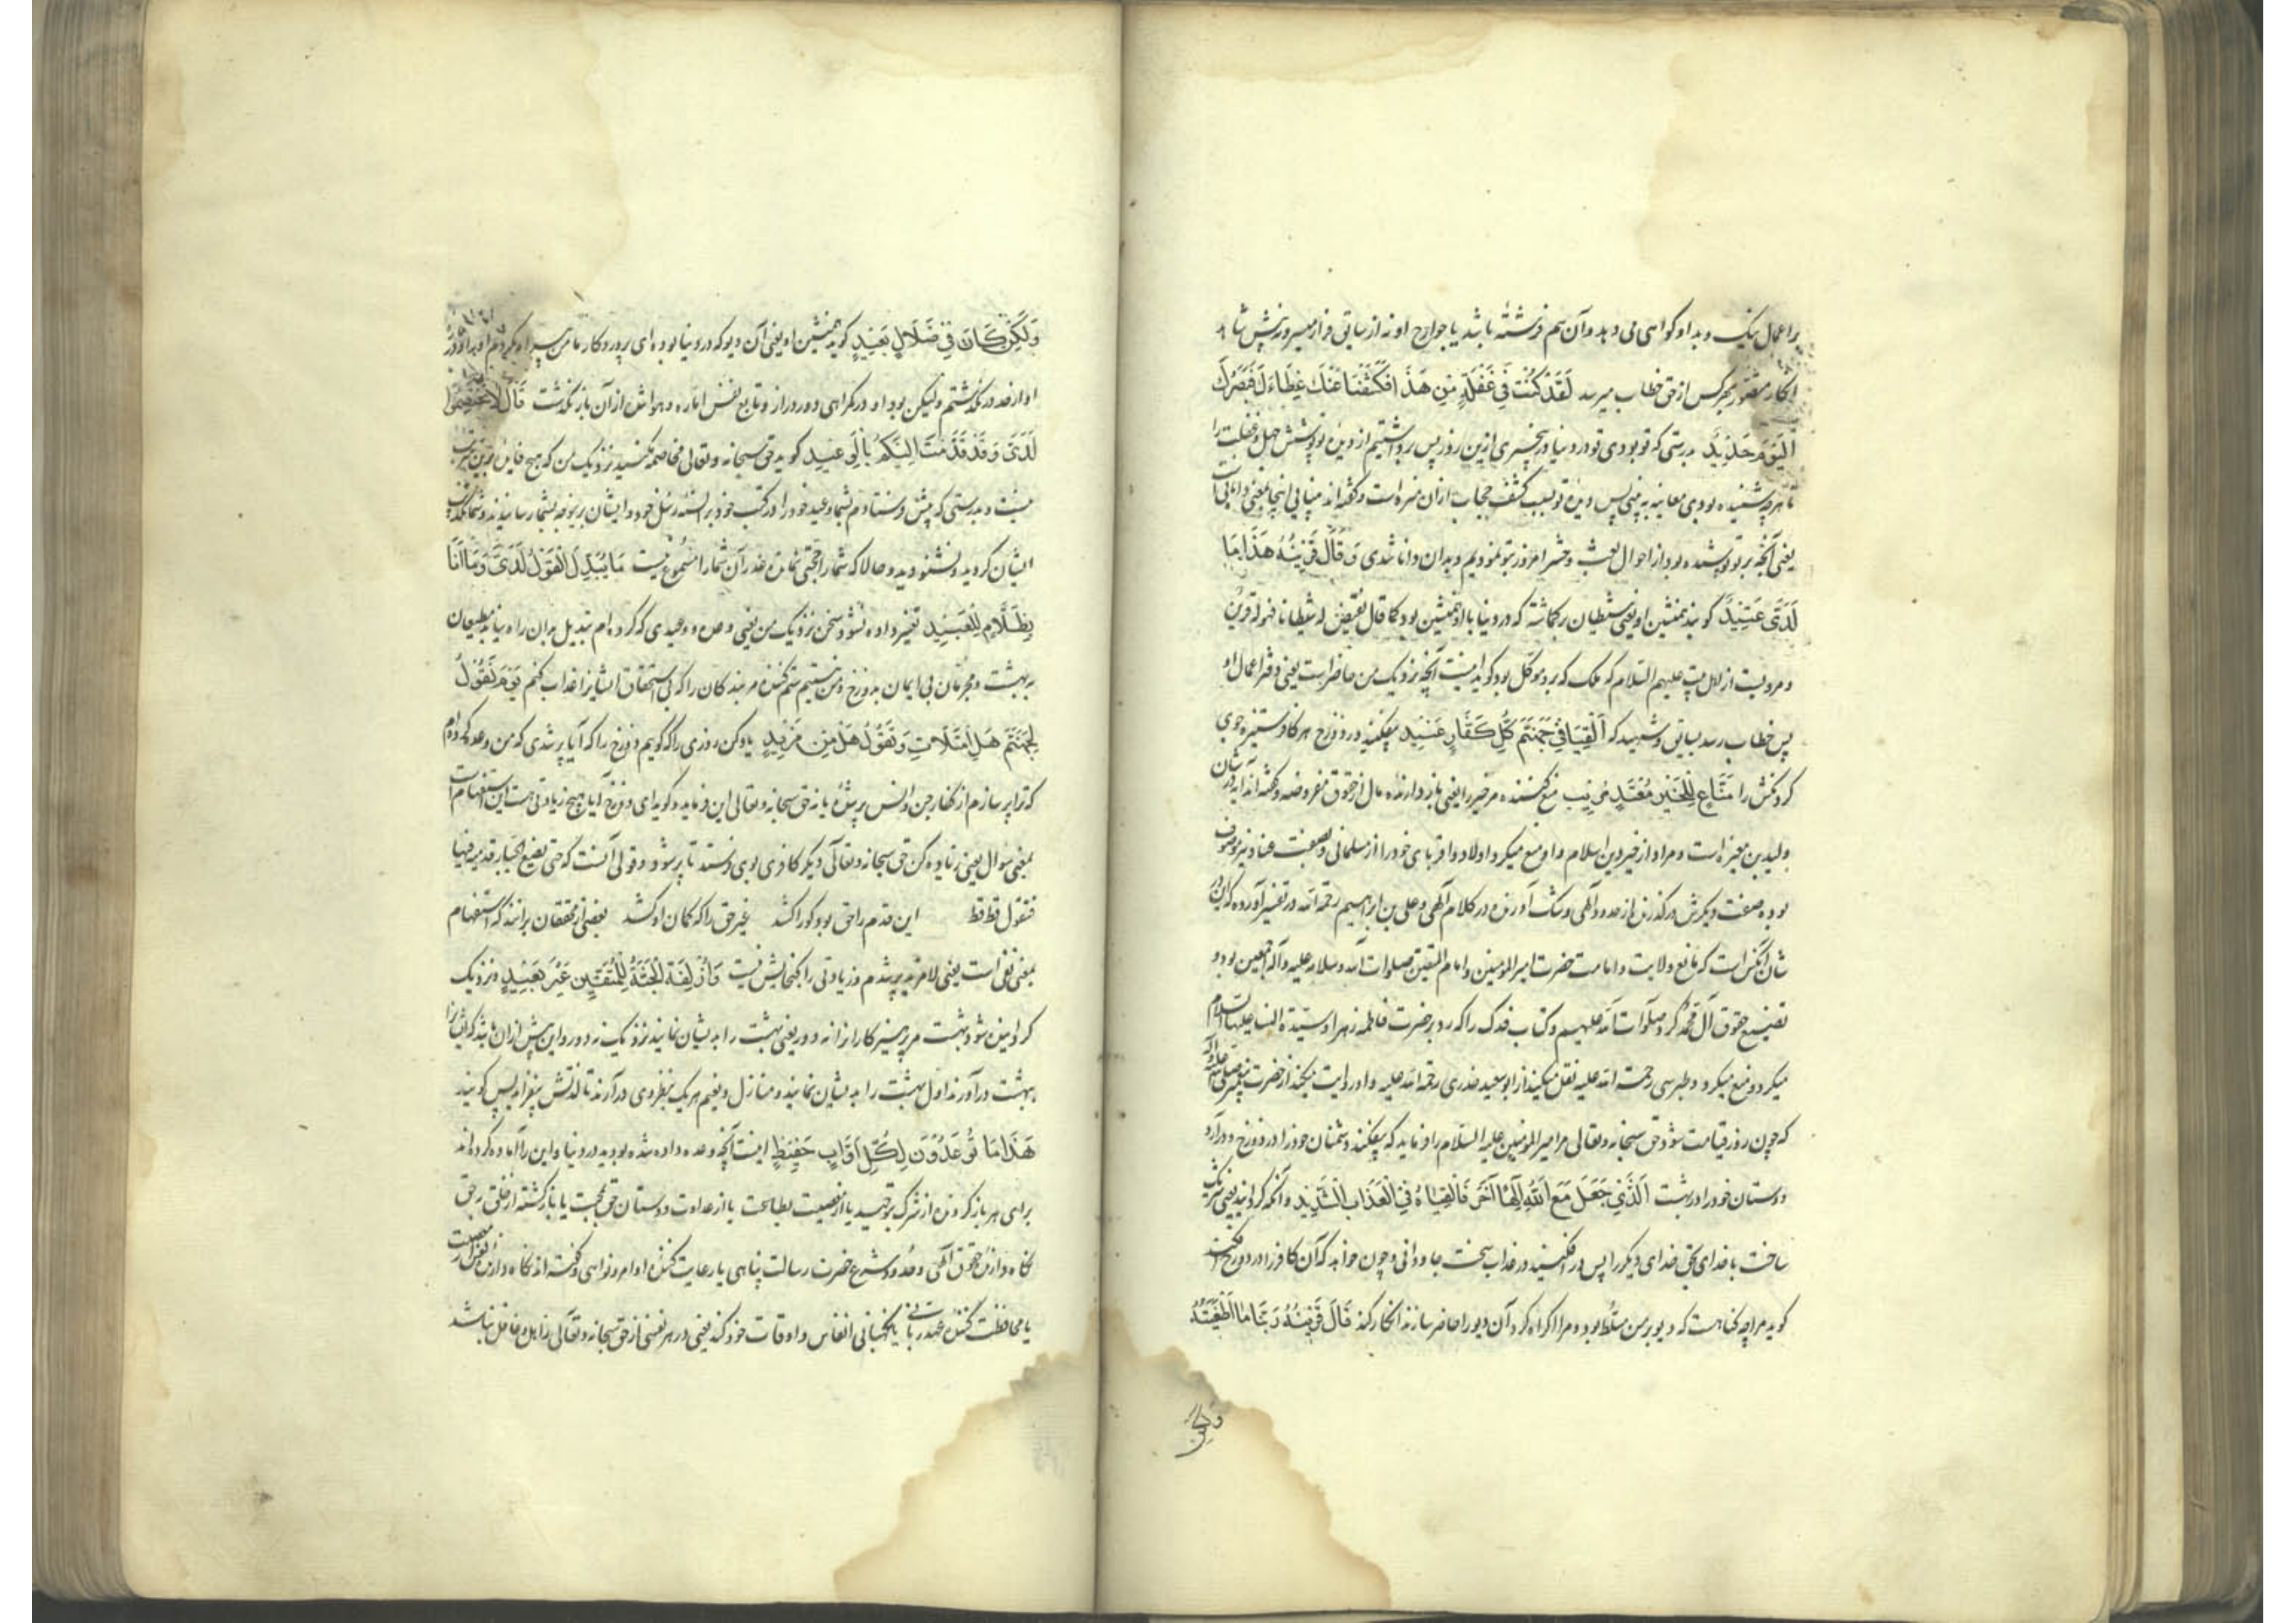 بر اعمال نیک و بد او گواهی می دهد و آن هم فرشته باشد یا جوارح او نه از سائق فرار میسر و نه پیش شاهد
انکار متصور بهر کس از حق خطاب میرسد لَقَدْ كُنْتَ فِي غَفْلَةٍ مِنْ هَذَا فَكَشَفْنَا عَنْكَ غِطَاءَكَ فَبَصَرُكَ
الْيَوْمَ حَدِيدٌ بدرستی که تو بودی تو در دنیا در بیخبری ازین روز پس برداشتیم از دیده تو پوشش جهل و غفلت را
تا هر چه شنیده بودی معاینه به بینی پس دیده تو بسبب کشف حجاب از آن تیز است و گفته اند بینایی اینجا بمعنی داناییست
یعنی آنچه بر تو پوشیده بود از احوال بعث و حشر امروز بتو نمودیم و بدان دانا شدی وَقَالَ قَرِينُهُ هَذَا مَا
لَدَيَّ عَتِيدٌ گوید همنشین او یعنی شیطان برگماشته که در دنیا با او همنشین بود کما قال نُقَيِّضْ لَهُ شَيْطَانًا فَهُوَ لَهُ قَرِينٌ
و مرویست از اهل بیت علیهم السلام که ملک که بر و موکل بود گوید اینست آنچه نزدیک من حاضر است یعنی دفتر اعمال او
پس خطاب رسد بسائق و شهید که أَلْقِيَا فِي جَهَنَّمَ كُلَّ كَفَّارٍ عَنِيدٍ بیفکنید در دوزخ هر کافر ستیزه جوی
گردنکش را مَنَّاعٍ لِلْخَيْرِ مُعْتَدٍ مُرِيبٍ منع کننده مر خیر را یعنی باز دارنده مال از حقوق مفروضه و گفته اند آیه در شان
ولید بن مغیره است و مراد از خیر دین اسلام و او منع میکرد اولاد و اقربای خود را از مسلمانی و بصفت عناد نیز موصوف
بوده صفت دیگرش در گذرنده از حدود الهی و شک آورنده در کلام الهی و علی بن ابراهیم رحمة الله در تفسیر آورده که این در
شان آنکس است که مانع ولایت و امامت حضرت امیرالمومنین و امام المتقین صلوات الله و سلامه علیه و آله اجمعین بود و
تضییع حقوق آل محمد کرد صلوات الله علیهم و کتاب فدک را که رد بر حضرت فاطمه زهرا و سیدة النساء علیها السلام
میکرد و منع میکرد و طبرسی رحمت الله علیه نقل میکند از ابو سعید خدری رحمة الله علیه و او روایت میکند از حضرت پیغمبر صلی الله علیه و آله
که چون روز قیامت شود حق سبحانه و تعالی مر امیرالمومنین علیه السلام را فرماید که بیفکنید دشمنان خود را در دوزخ و درآرید
دوستان خود را در بهشت الَّذِي جَعَلَ مَعَ اللَّهِ إِلَهًا آخَرَ فَأَلْقِيَاهُ فِي الْعَذَابِ الشَّدِيدِ و آنکه گرداند یعنی شریک
ساخت با خدای بحق خدای دیگر را پس در افکنید در عذاب سخت جاودانی و چون خواهد که آن کافر را در دوزخ افکنند
گوید مرا چه گناهست که دیو بر من مسلط بود و مرا اکراه کرد آن دیو را حاضر سازند انکار کند قَالَ قَرِينُهُ رَبَّنَا مَا أَطْغَيْتُهُ
ولکن
وَلَكِنْ كَانَ فِي ضَلَالٍ بَعِيدٍ گوید همنشین او یعنی آن دیو که در دنیا بوده ای پروردگار ما من بیراه نکردم او را
او از حد در نگذشتم ولیکن بود او در گمراهی و دور و دراز و تابع نفس اماره و هواش از آن باز نگذشت قَالَ لَا تَخْتَصِمُوا
لَدَيَّ وَقَدْ قَدَّمْتُ إِلَيْكُمْ بِالْوَعِيدِ گوید حق سبحانه و تعالی مخاصمه مکنید نزدیک من که هیچ فایده برین مترتب
نیست و بدرستی که پیش فرستادم بشما وعید خود را در کتب خود بر السنه رسل خود و ایشان بی توقف بشما رسانیدند و شما تکذیب
ایشان کردید و نشنودید و حالا که شما را حجتی نمانده عذر آن شما را مسموع نیست مَا يُبَدَّلُ الْقَوْلُ لَدَيَّ وَمَا أَنَا
بِظَلَّامٍ لِلْعَبِيدِ تغییر داده نشود سخن نزدیک من یعنی وعده و وعیدی که کرده ام تبدیل بدان راه نیابد مطیعان
به بهشت و مجرمان بی ایمان بدوزخ و من نیستم ستم کننده مر بندگان را که بی استحقاق ایشانرا عذاب کنم يَوْمَ نَقُولُ
لِجَهَنَّمَ هَلِ امْتَلَأْتِ وَتَقُولُ هَلْ مِنْ مَزِيدٍ یاد کن روزی را که گوییم دوزخ را که آیا پر شدی که من وعده کرده ام
که ترا پر سازم از کفار جن و انس پر شده یا نه حق سبحانه و تعالی این فرماید و گوید ای دوزخ آیا هیچ زیادتی هست این استفهام است
بمعنی سوال یعنی زیاده کن حق سبحانه و تعالی دیگر کافری بوی فرستد تا پر شود و قولی آنست که حتی یضع الجبار قدمه فیها
فتقول قط قط این قدم را حق بود کو را کشد غیر حق را که کمان او کشد بعضی از محققان برانند که استفهام
بمعنی نفی است یعنی لا مزید پر شدم و زیادتی را گنجایش نیست وَأُزْلِفَتِ الْجَنَّةُ لِلْمُتَّقِينَ غَيْرَ بَعِيدٍ و نزدیک
گردانیده شود بهشت مر پرهیزکارانرا نه دور یعنی بهشت را بدیشان نمایند نزدیک نه دور و این پیش از آن باشد که ایشانرا
بهشت درآورند اول بهشت را بدیشان نمایند و منازل و نعیم هر یک بنظر وی درآرند تا لذتش بیفزاید پس گویند
هَذَا مَا تُوعَدُونَ لِكُلِّ أَوَّابٍ حَفِيظٍ اینست آنچه وعده داده شده بودید در دنیا و این را آماده کرده اند
برای هر باز گردنده از شرک بتوحید یا از معصیت بطاعت یا از عداوت دوستان حق بمحبت یا باز گشته از خلق بحق
نگاه دارنده حقوق الهی و حدود شرع حضرت رسالت پناهی یا رعایت کننده اوامر و نواهی و گفته اند نگاه دارنده نفس از معصیت
یا محافظت کننده عهد ربانی یا نگهبانی انفاس و اوقات خود کند یعنی در هر نفسی از حق سبحانه و تعالی ذاهل و غافل نباشد